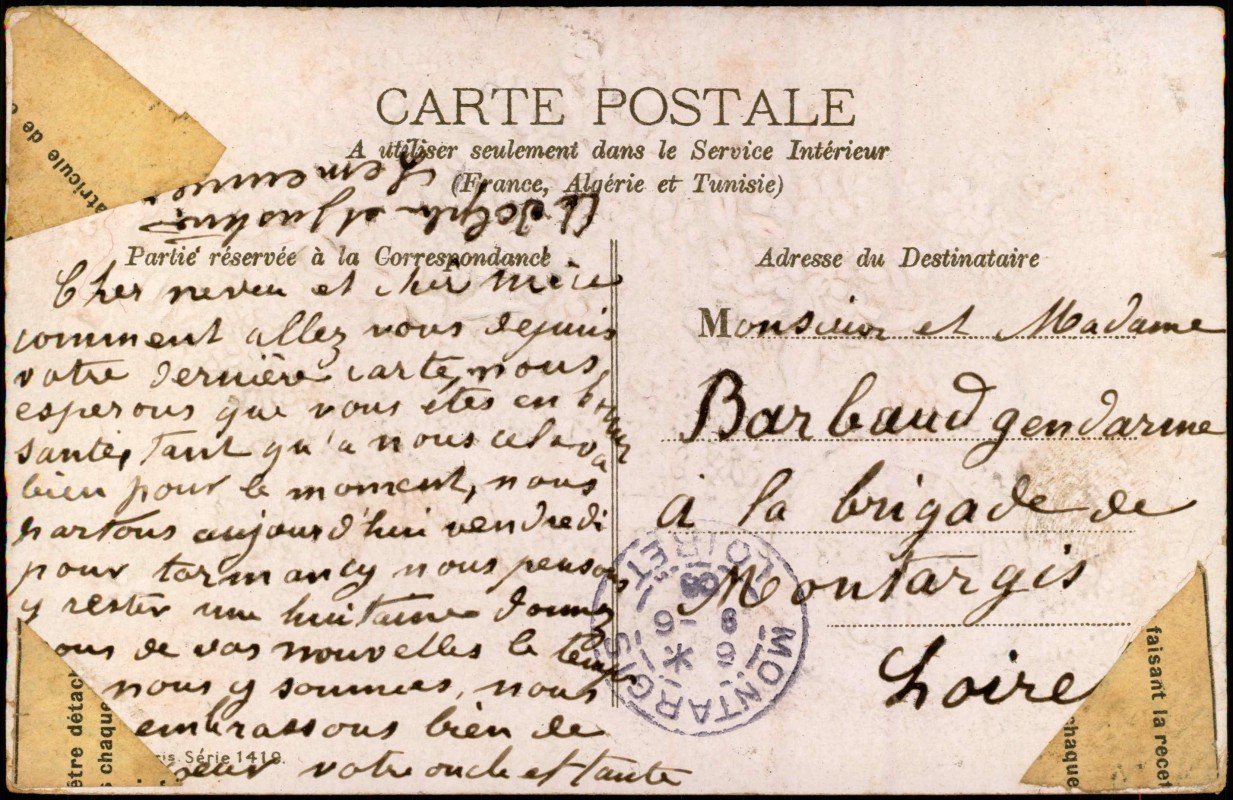 CARTE POSTALE
A utiliser seulement dans le Service Intérieur
(France, Algérie et Tunisie)
Partie réservée à la Correspondance
Adresse du Destinataire
Cher neveu et chèr nièce
comment allez vous depuis
votre dernière carte, nous
esperons que vous êtes en bonne
santé, tant qu'a nous cela va
bien pour le moment, nous
partons aujourd'hui vendredi
pour tormancy nous pensons
y rester une huitaine donnez
ous de vos nouvelles le temps
nous y sommes, nous
embrassons bien de
coeur votre oncle et tante
Adolph et
Monsieur et Madame
Barbaud gendarme
à la brigade de
Montargis
Loiret
MONTARGIS
LOIRET
is Série 1419.
atricule de
être détach
s chaque
faisant la recet
chaque